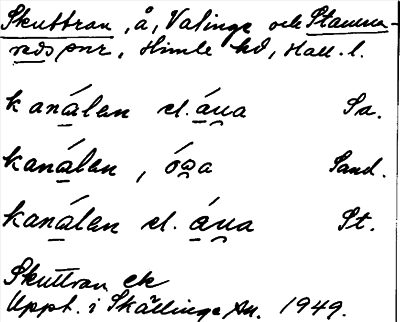 Skuttran, å, Valinge och Stamna-
reds snr, Himle hd, Hall. l.
kanálen el. áua Sa.
kanálen, óa Sand.
kanálen el. áua St.
Skuttran ek
Uppt. i Skällinge An. 1949.